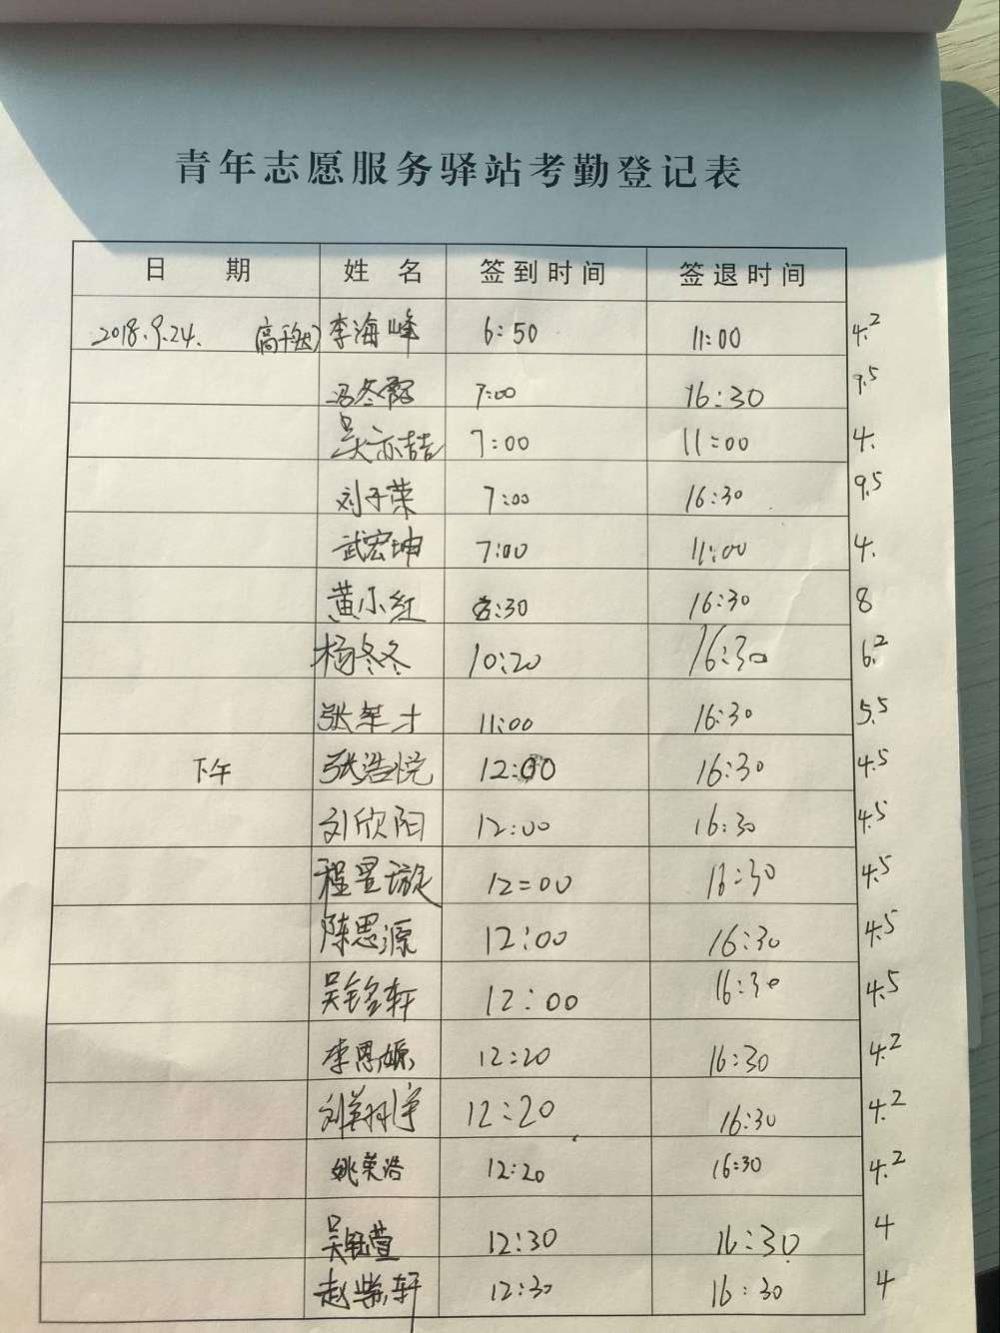 青年志愿服务驿站考勤登记表
日 期 姓 名 签到时间 签退时间
2018.9.24. 李海峰 6:50 11:00 4.2
冯冬 7:00 16:30 9.5
吴亦喆 7:00 11:00 4.
刘子荣 7:00 16:30 9.5
武宏坤 7:00 11:00 4.
黄小红 8:30 16:30 8
杨冬冬 10:20 16:30 6.2
张军才 11:00 16:30 5.5
下午 张浩悦 12:00 16:30 4.5
刘欣阳 12:00 16:30 4.5
程昱璇 12:00 16:30 4.5
陈思源 12:00 16:30 4.5
吴铭轩 12:00 16:30 4.5
李思嫄 12:20 16:30 4.2
刘 12:20 16:30 4.2
姚英浩 12:20 16:30 4.2
吴钰萱 12:30 16:30 4
赵紫轩 12:30 16:30 4